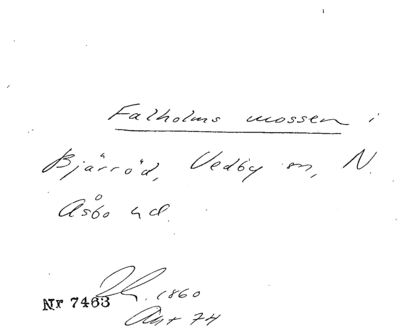 Falholms mossen i
Bjärröd, Vedby sn, N.
Åsbo hd.
1860
Nr 7463
Ant 74